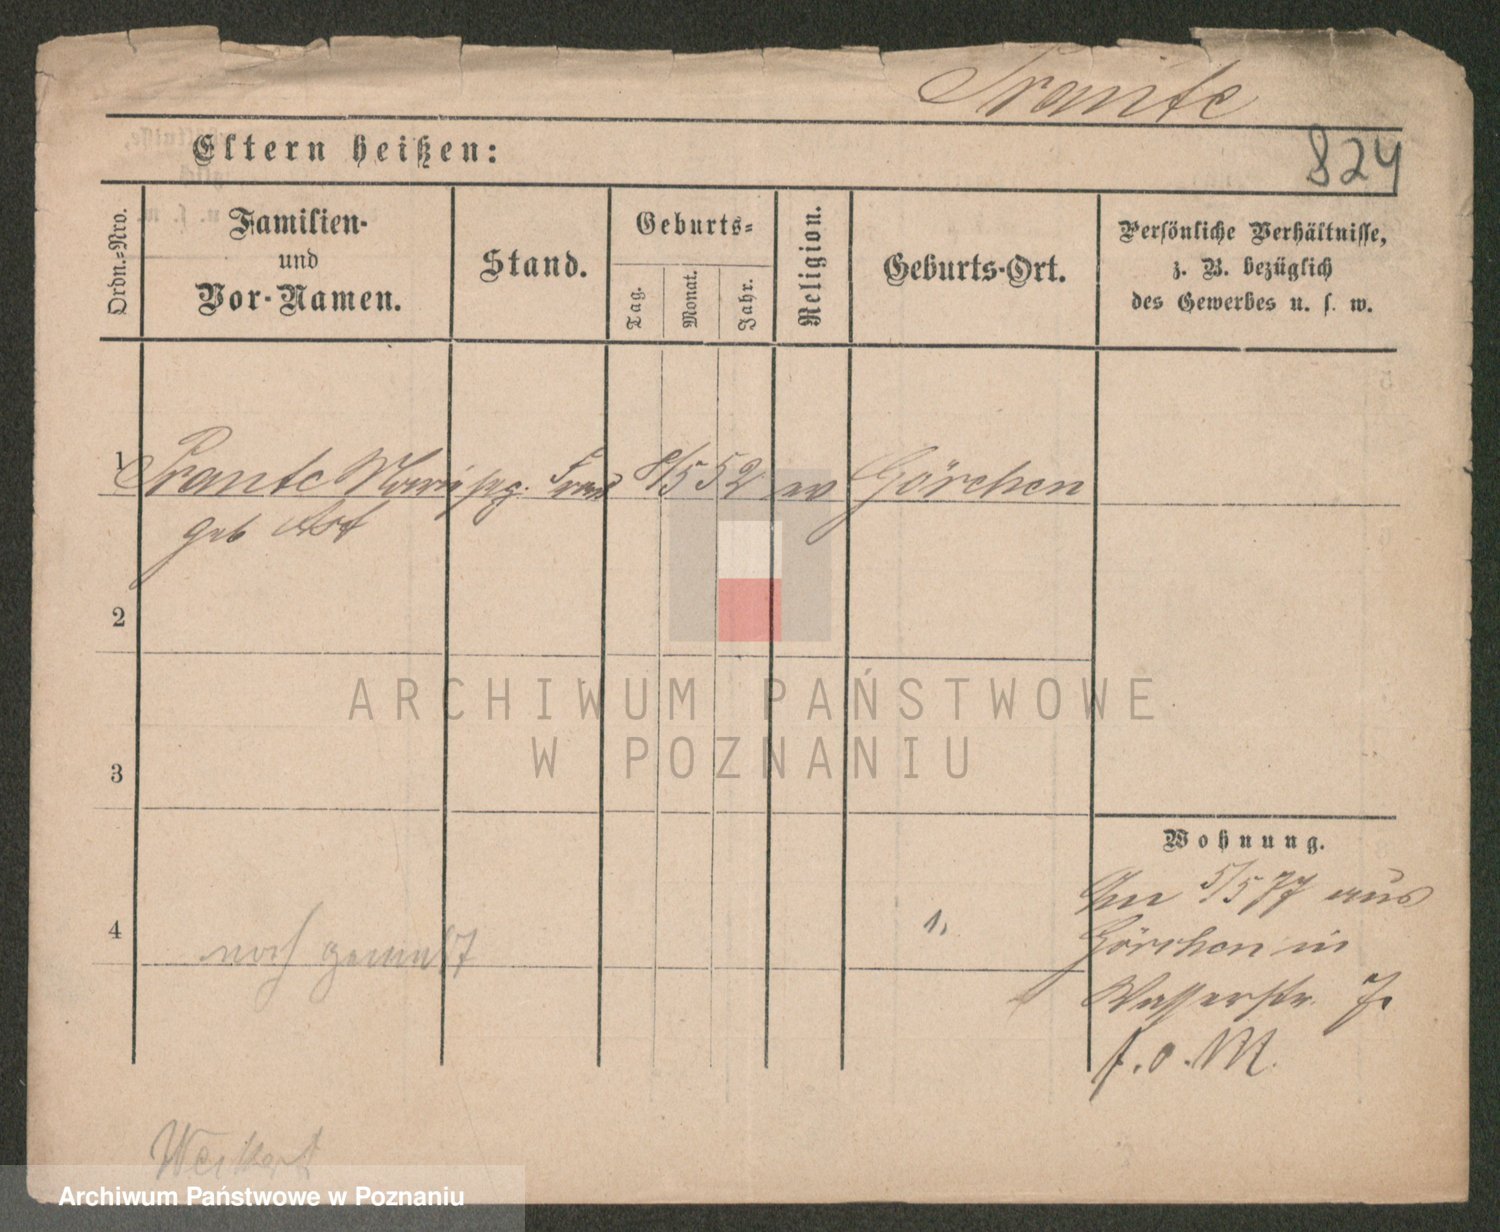 Prante
824
Eltern heißen:
Ordn.-Nro.
Familien-
und
Vor-Namen.
Stand.
Geburts-
Tag.
Monat.
Jahr.
Religion.
Geburts-Ort.
Persönliche Verhältnisse,
z. B. bezüglich
des Gewerbes u. s. w.
1
Prante Marie 8/5 52 ev Görchen
geb Ast
2
3
Wohnung.
4
noch
1.
5/5 77 aus
Görchen in
Wasserstr. 7.
f. o. M.
Weikert
ARCHIWUM PAŃSTWOWE
W POZNANIU
Archiwum Państwowe w Poznaniu